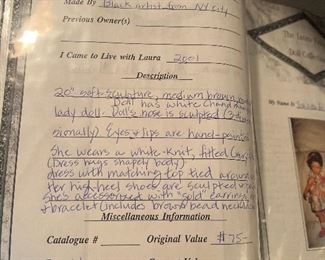 Made By Black artist from NY City
Previous Owner(s)
I Came to Live with Laura 2001
Description
20" soft-sculpture, medium brown
Doll has white
lady doll. Doll's nose is sculpted (3-
sionally) Eyes & lips are hand-painted
She wears a white-knit, fitted
(Dress hugs shapely body)
dress with matching top tied around
Her high heel shoes are sculpted
She's accessorized with "gold" earrings
& bracelet (includes brown bead necklace
Miscellaneous Information
Catalogue # Original Value $75-
The
Doll Collection
My Name Is